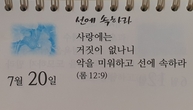 선에 속하라
사랑에는
거짓이 없나니
악을 미워하고 선에 속하라
(롬 12:9)
7월 20일